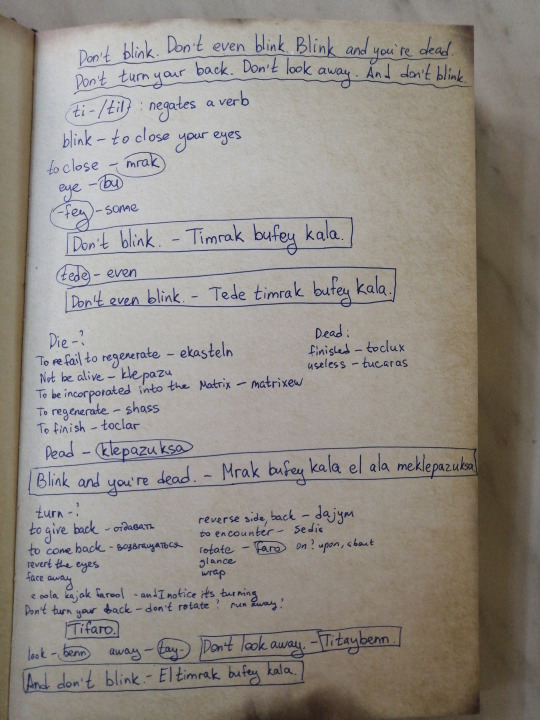 Don't blink. Don't even blink. Blink and you're dead.
Don't turn your back. Don't look away. And don't blink.
ti-/til : negates a verb
blink - to close your eyes
to close - mrak
eye - bu
-fey - some
Don't blink. - Timrak bufey kala.
tede - even
Don't even blink. - Tede timrak bufey kala.
Die - ?
To fail to regenerate - ekasteln
Not be alive - klepazu
To be incorporated into the Matrix - matrixew
To regenerate - shass
To finish - toclar
Dead:
finished - toclux
useless - tucaras
Dead - klepazuksa
Blink and you're dead. - Mrak bufey kala el ala meklepazuksa
turn - ?
to give back - отдавать
to come back - возвращаться
revert the eyes
face away
reverse side, back - dajym
to encounter - sedie
rotate - faro on? upon, about
glance
wrap
oola kajak farool - and I notice its turning
Don't turn your back - don't rotate? run away?
Tifaro.
look - benn away - tay- Don't look away. - Titaybenn.
And don't blink. - El timrak bufey kala.